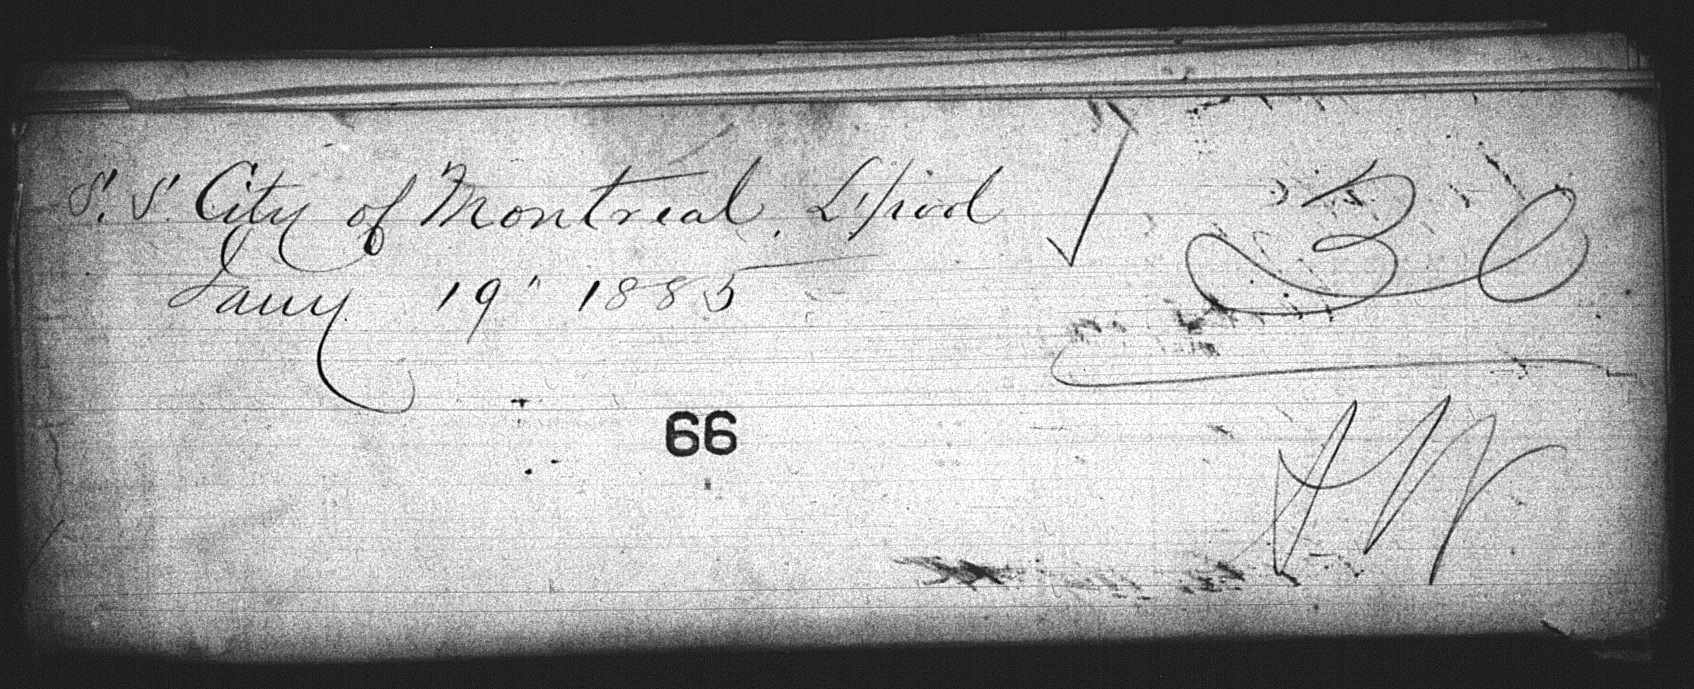 S. S. City of Montreal. L'pool
Jany 19" 1885
30
66